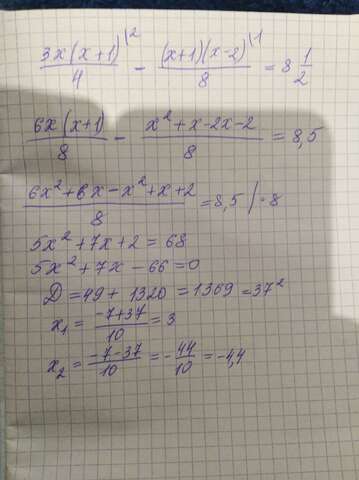 3x(x+1)^{|2}/4 - (x+1)(x-2)^{|1}/8 = 8 1/2
6x(x+1)/8 - x²+x-2x-2/8 = 8,5
6x²+6x-x²+x+2/8 = 8,5 /·8
5x²+7x+2=68
5x²+7x-66=0
D=49+1320=1369=37²
x₁ = -7+37/10 = 3
x₂ = -7-37/10 = -44/10 = -4,4